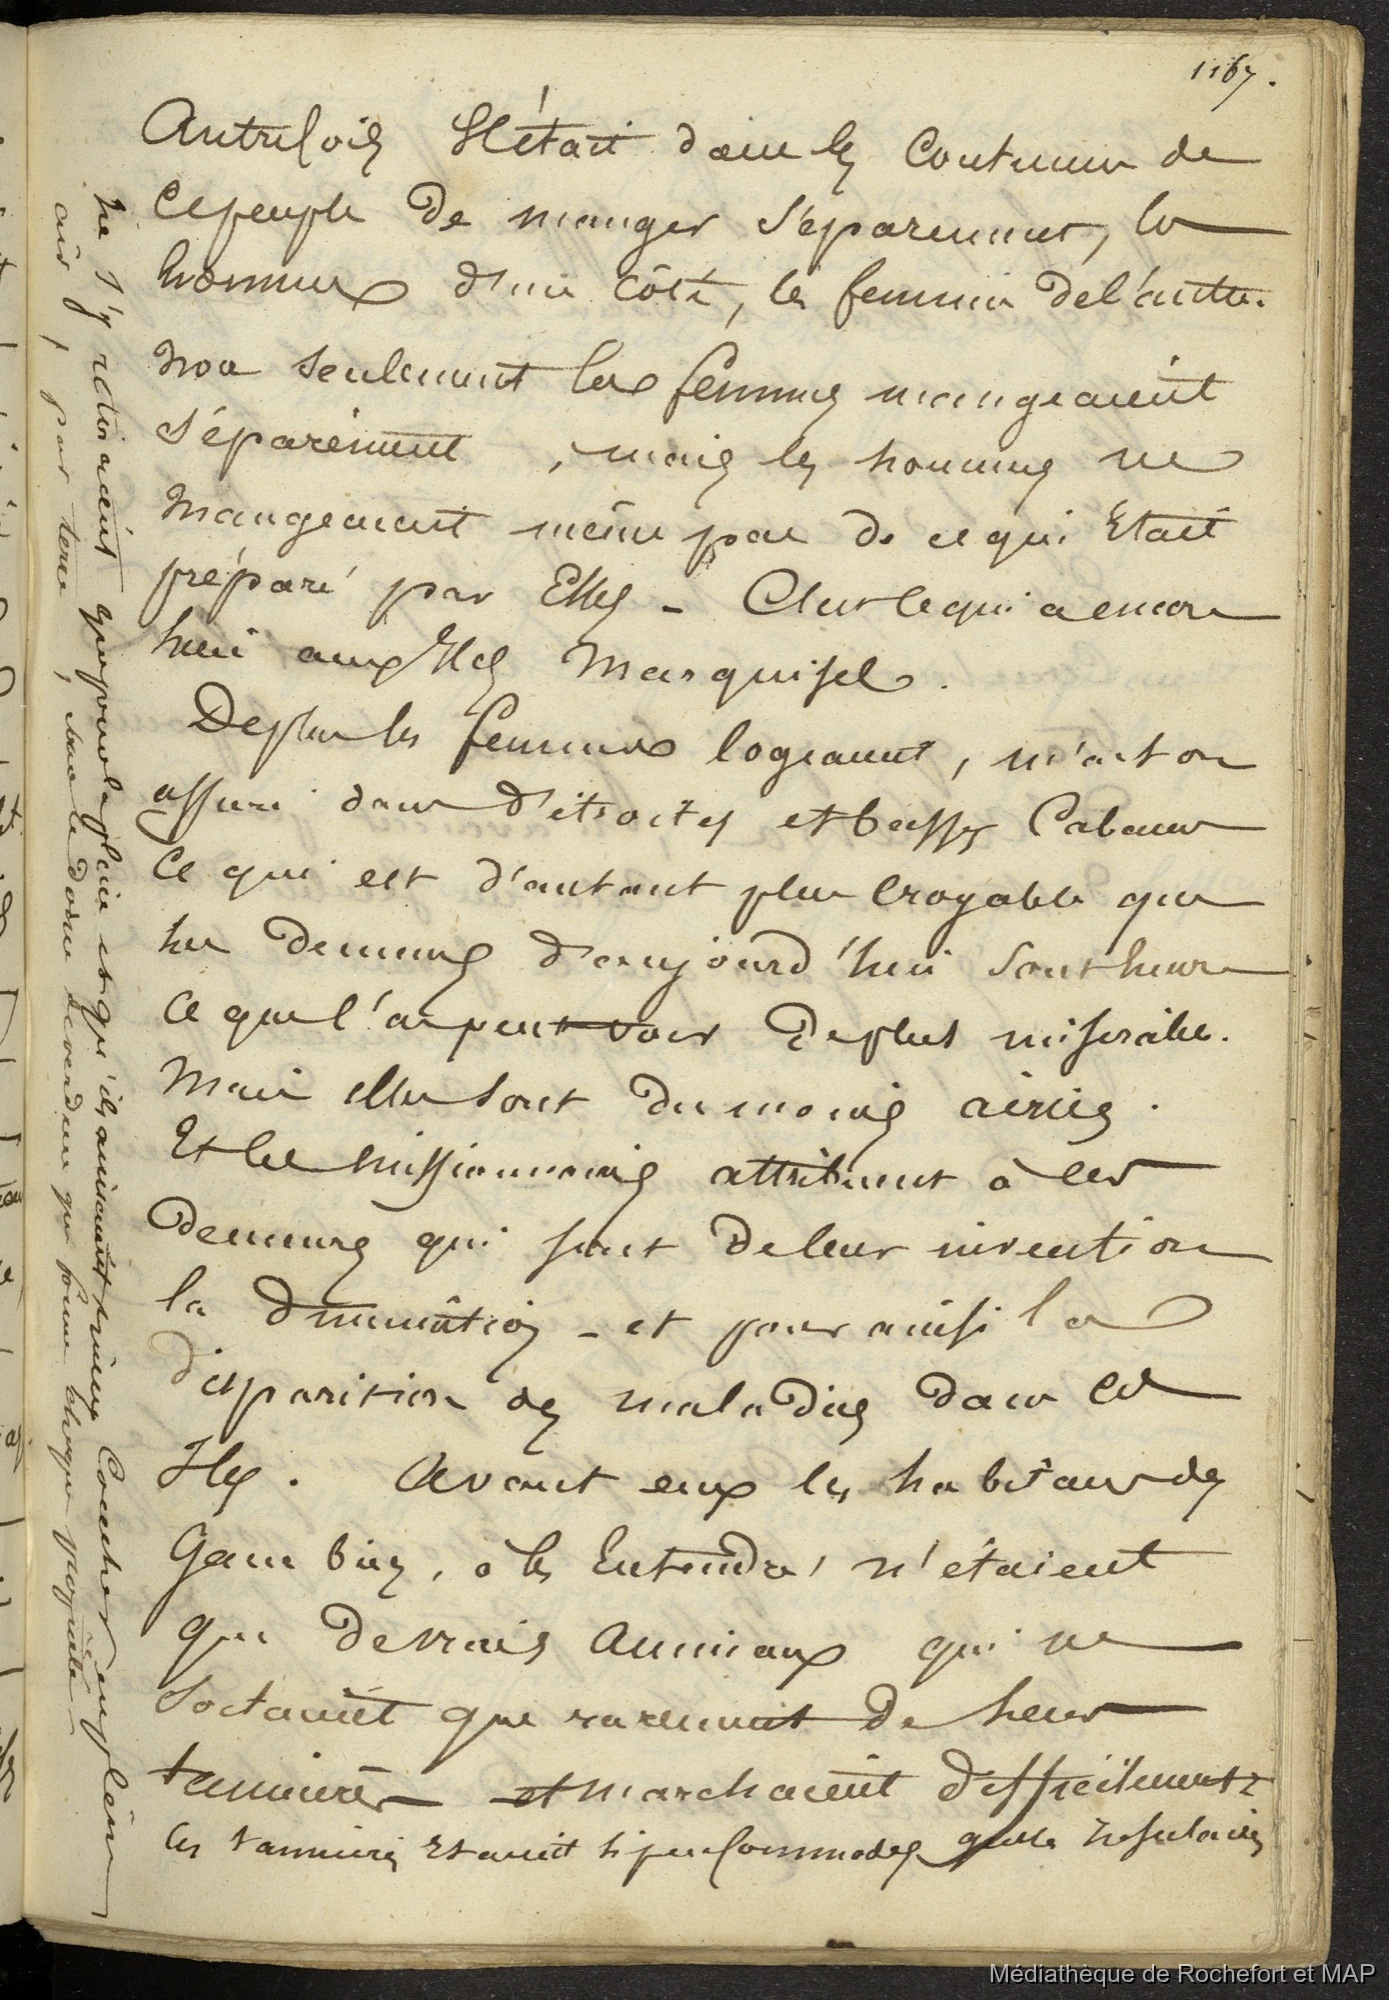 1167.
Autrefois Il était dans les coutumes de
ce peuple de manger séparément, les
hommes d'un côté, les femmes de l'autre.
Non seulement les femmes mangeaient
séparément, mais les hommes ne
mangeaient même pas de ce qui Etait
préparé par Elles - C'est ce qui a encore
lieu aux Iles Marquises.
De plus les femmes logeaient, m'a t on
assuré dans d'étroites et basses Cabanes
Ce qui est d'autant plus croyable que
les demeures d'aujourd'hui sont encore
ce que l'on peut voir de plus misérable.
Mais elles sont du moins aérées.
Et les missionnaires attribuent à ces
demeures qui sont de leur invention
la diminution - et pour ainsi la
disparition des maladies dans ces
Iles. Avant eux les habitans des
Gambier, à les Entendre, n'étaient
que de vrais Animaux qui ne
sortaient que rarement de leurs
tannières et marchaient difficilement.
les tannières Etaient si peu commodes que les Insulaires
ne s'y retiraient que pour la pluie et qu'ils aimaient mieux coucher en plein
air, par terre, sous le dôme de verdure que forme chaque propriété
Médiathèque de Rochefort et MAP